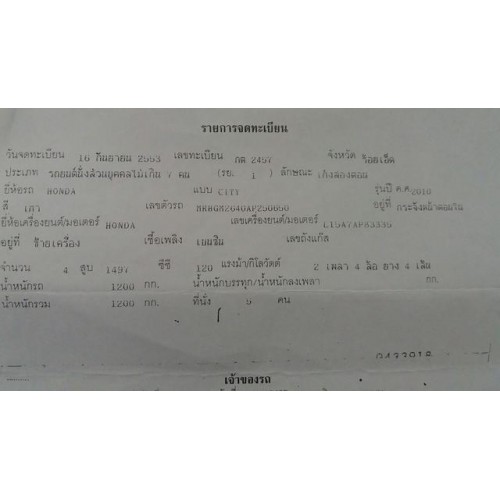 รายการจดทะเบียน
วันจดทะเบียน 16 กันยายน 2553 เลขทะเบียน กต 2457 จังหวัด ร้อยเอ็ด
ประเภท รถยนต์นั่งส่วนบุคคลไม่เกิน 7 คน (รย. 1 ) ลักษณะ เก๋งสองตอน
ยี่ห้อรถ HONDA แบบ CITY รุ่นปี ค.ศ.2010
สี เทา เลขตัวรถ อยู่ที่
ยี่ห้อเครื่องยนต์/มอเตอร์ HONDA เลขเครื่องยนต์/มอเตอร์
อยู่ที่ ซ้ายเครื่อง เชื้อเพลิง เบนซิน เลขถังแก๊ส
จำนวน 4 สูบ 1497 ซีซี 120 แรงม้า/กิโลวัตต์ 2 เพลา 4 ล้อ ยาง 4 เส้น
น้ำหนักรถ 1200 กก. น้ำหนักบรรทุก/น้ำหนักลงเพลา กก.
น้ำหนักรวม 1200 กก. ที่นั่ง คน
เจ้าของรถ